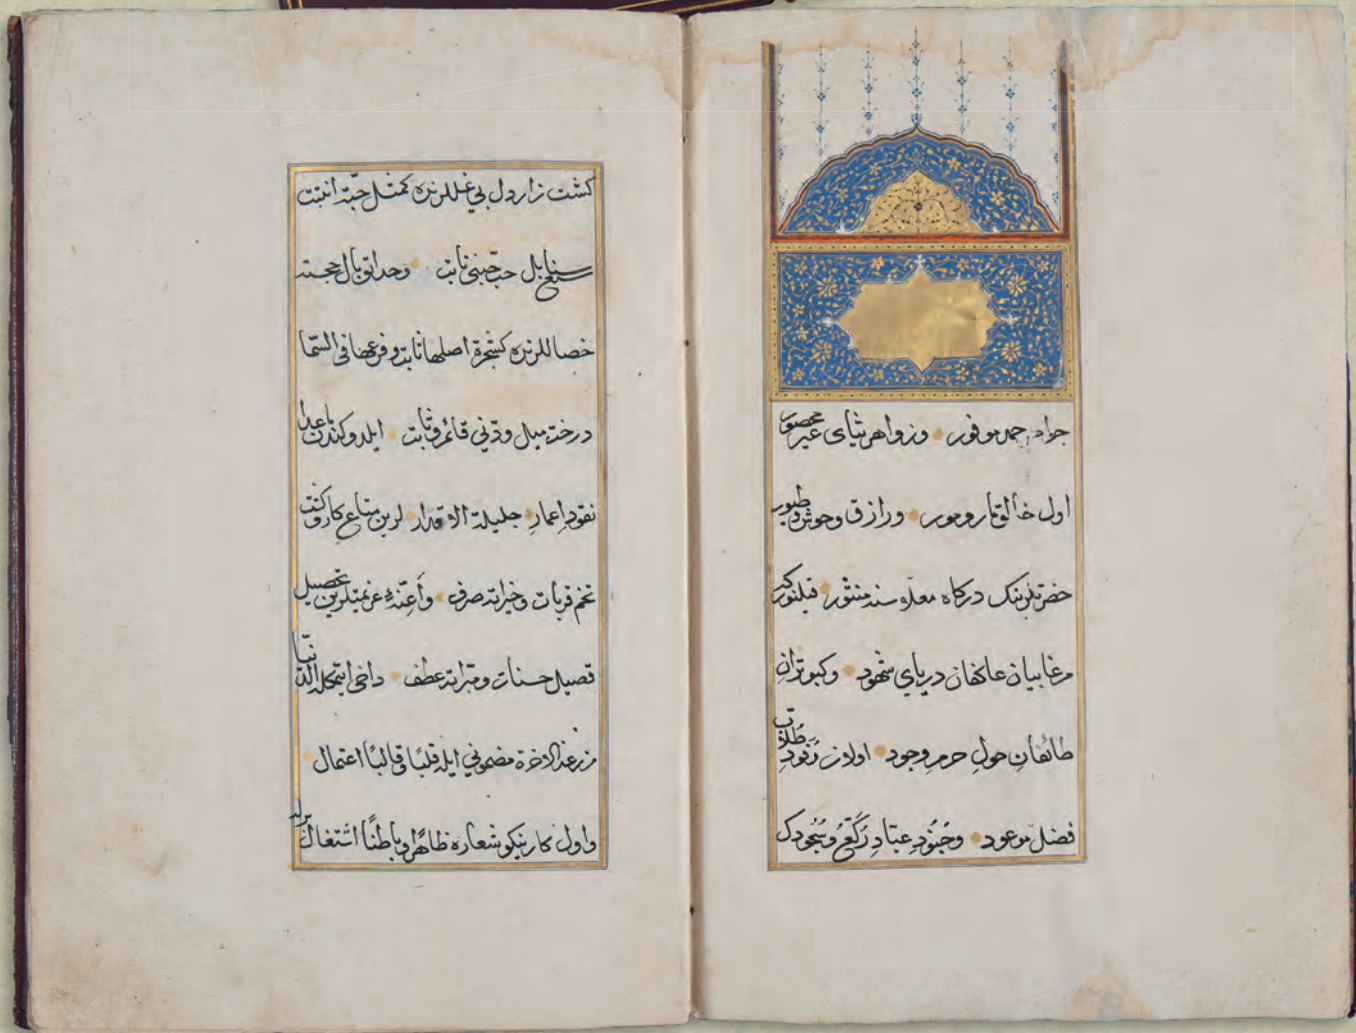 جواهر حمد موفور و زواهر ثنای غیر محصور
اول خالق مار و مور و رازق وحوش و طیور
حضرتلرینك درکاه معلاسنه منثور قیلنور که
مرغابیان عاکفان دریای شهود و کبوتران
طائفان حول حرم وجود اولان رفود طلاب
فضل موعود و جنود عباد رکع و سجودك
کشت زار دل بی غللرنده کمثل حبة انبتت
سبع سنابل حب حبنی نابت و حدائق بال خجسته
خصاللرنده کشجرة اصلها ثابت و فرعها فی السما
درخت میل ودنی قائم و ثابت ایلدوکندن ماعدا
نقود اعمار جلیلة الاقدارلرین متاع کار و کشت
تخم قربات و خیراته صرف و اعنهٔ عزیمتلرین تحصیل
قصیل حسنات و مبراته عطف داخی ایتمکله الدنیا
مزرعة الاخرة مضمونی ایله قلبًا و قالبًا اعتمال
و اول کار نیکو شعاره ظاهرًا و باطنًا اشتغال